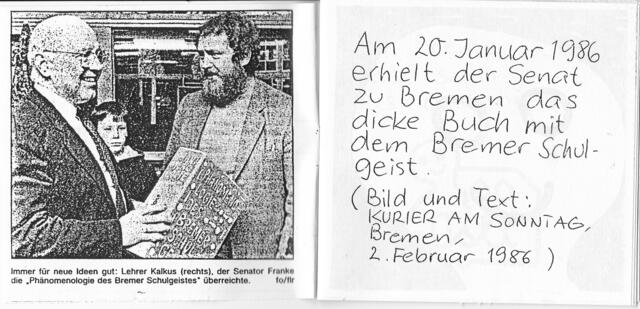 Immer für neue Ideen gut: Lehrer Kalkus (rechts), der Senator Franke
die „Phänomenologie des Bremer Schulgeistes" überreichte. fo/flr
Am 20. Januar 1986
erhielt der Senat
zu Bremen das
dicke Buch mit
dem Bremer Schul-
geist.
(Bild und Text:
KURIER AM SONNTAG,
Bremen,
2. Februar 1986)